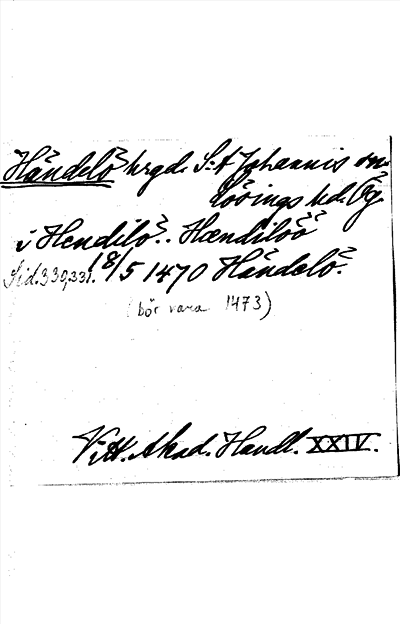 Händelö hrgd. S:t Johannis sn.
Lösings hd. Ög.
i Hendilö.. Hændiløø
Sid. 330, 331. 18/5 1470 Händelö.
(bör vara 1473)
Vitt. Akad. Handl. XXIV.